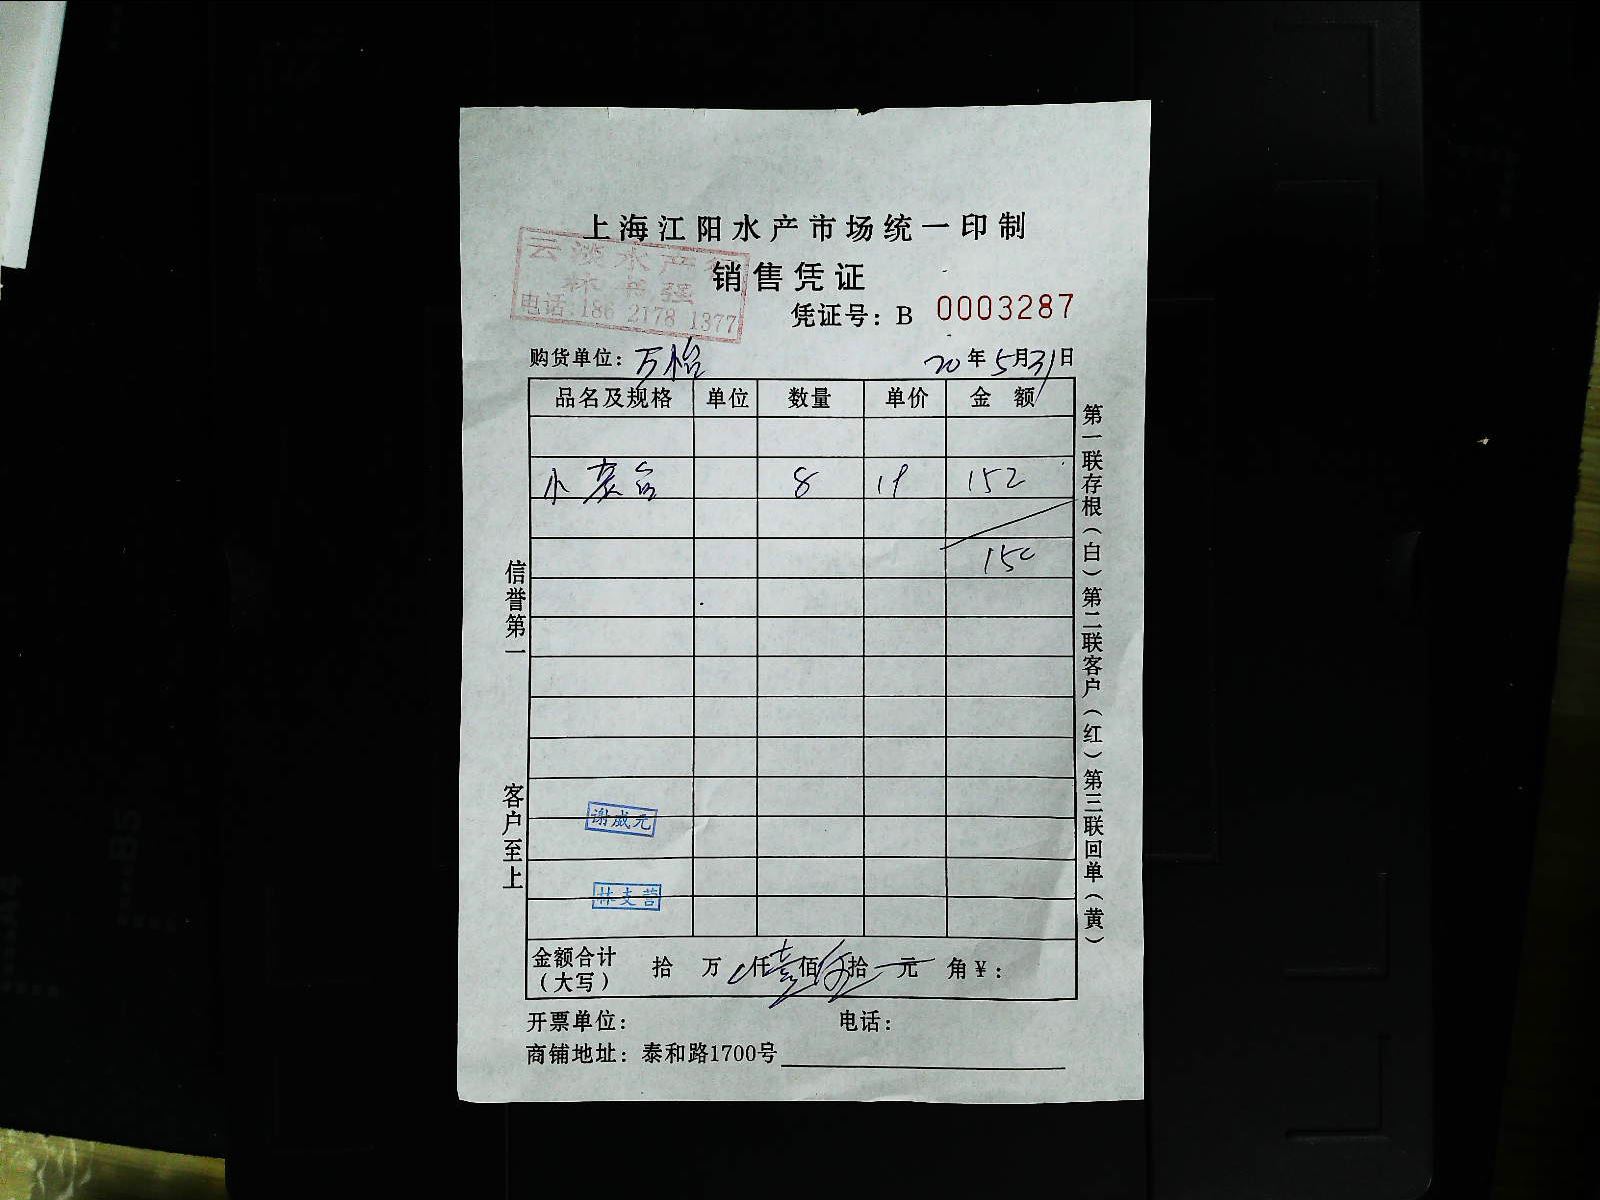 上海江阳水产市场统一印制
云淡水产行
林书强
电话:186 2178 1377
销售凭证
凭证号：B 0003287
购货单位：万怡 20年5月31日
品名及规格 单位 数量 单价 金额
8 19 152
150
信誉第一
客户至上
谢成元
林支营
第一联存根（白）第二联客户（红）第三联回单（黄）
金额合计（大写） 拾 万 仟壹佰伍拾元 角¥：
开票单位： 电话：
商铺地址：泰和路1700号